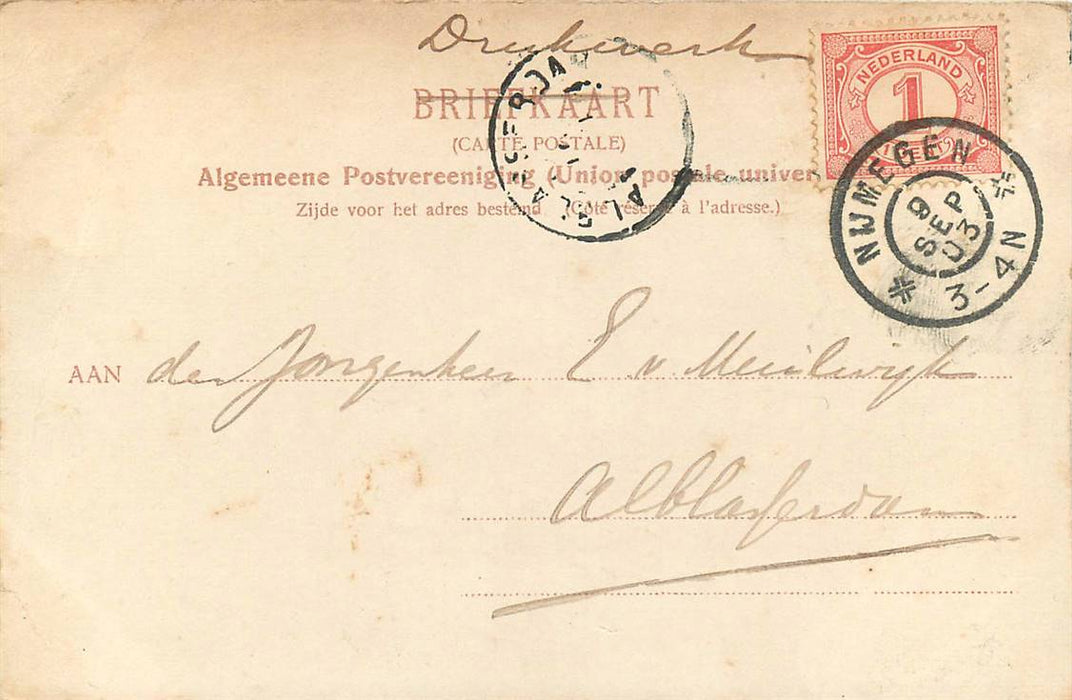 Drukwerk
NEDERLAND
1
BRIEFKAART
(CARTE POSTALE)
Algemeene Postvereeniging (Union postale univer
Zijde voor het adres bestemd (Côté réservé à l'adresse.)
ALBLASSERDAM
NIJMEGEN
9 SEP 03
3-4N
AAN den Jongenheer E v. Meulwijk
Alblasserdam